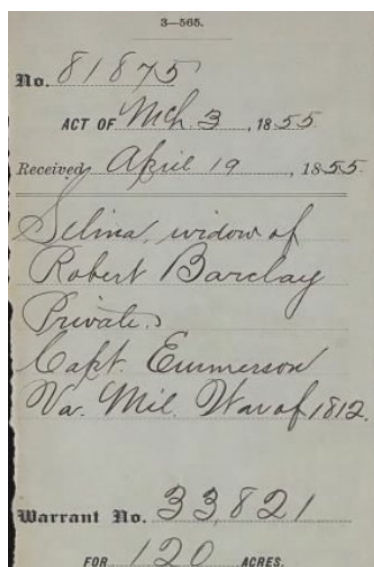 3—565.
No. 81875
ACT OF Mch. 3, 1855.
Received April 19, 1855.
Selina, widow of
Robert Barclay
Private.
Capt. Emmerson
Va. Mil. War of 1812.
Warrant No. 33,821
FOR 120 ACRES.